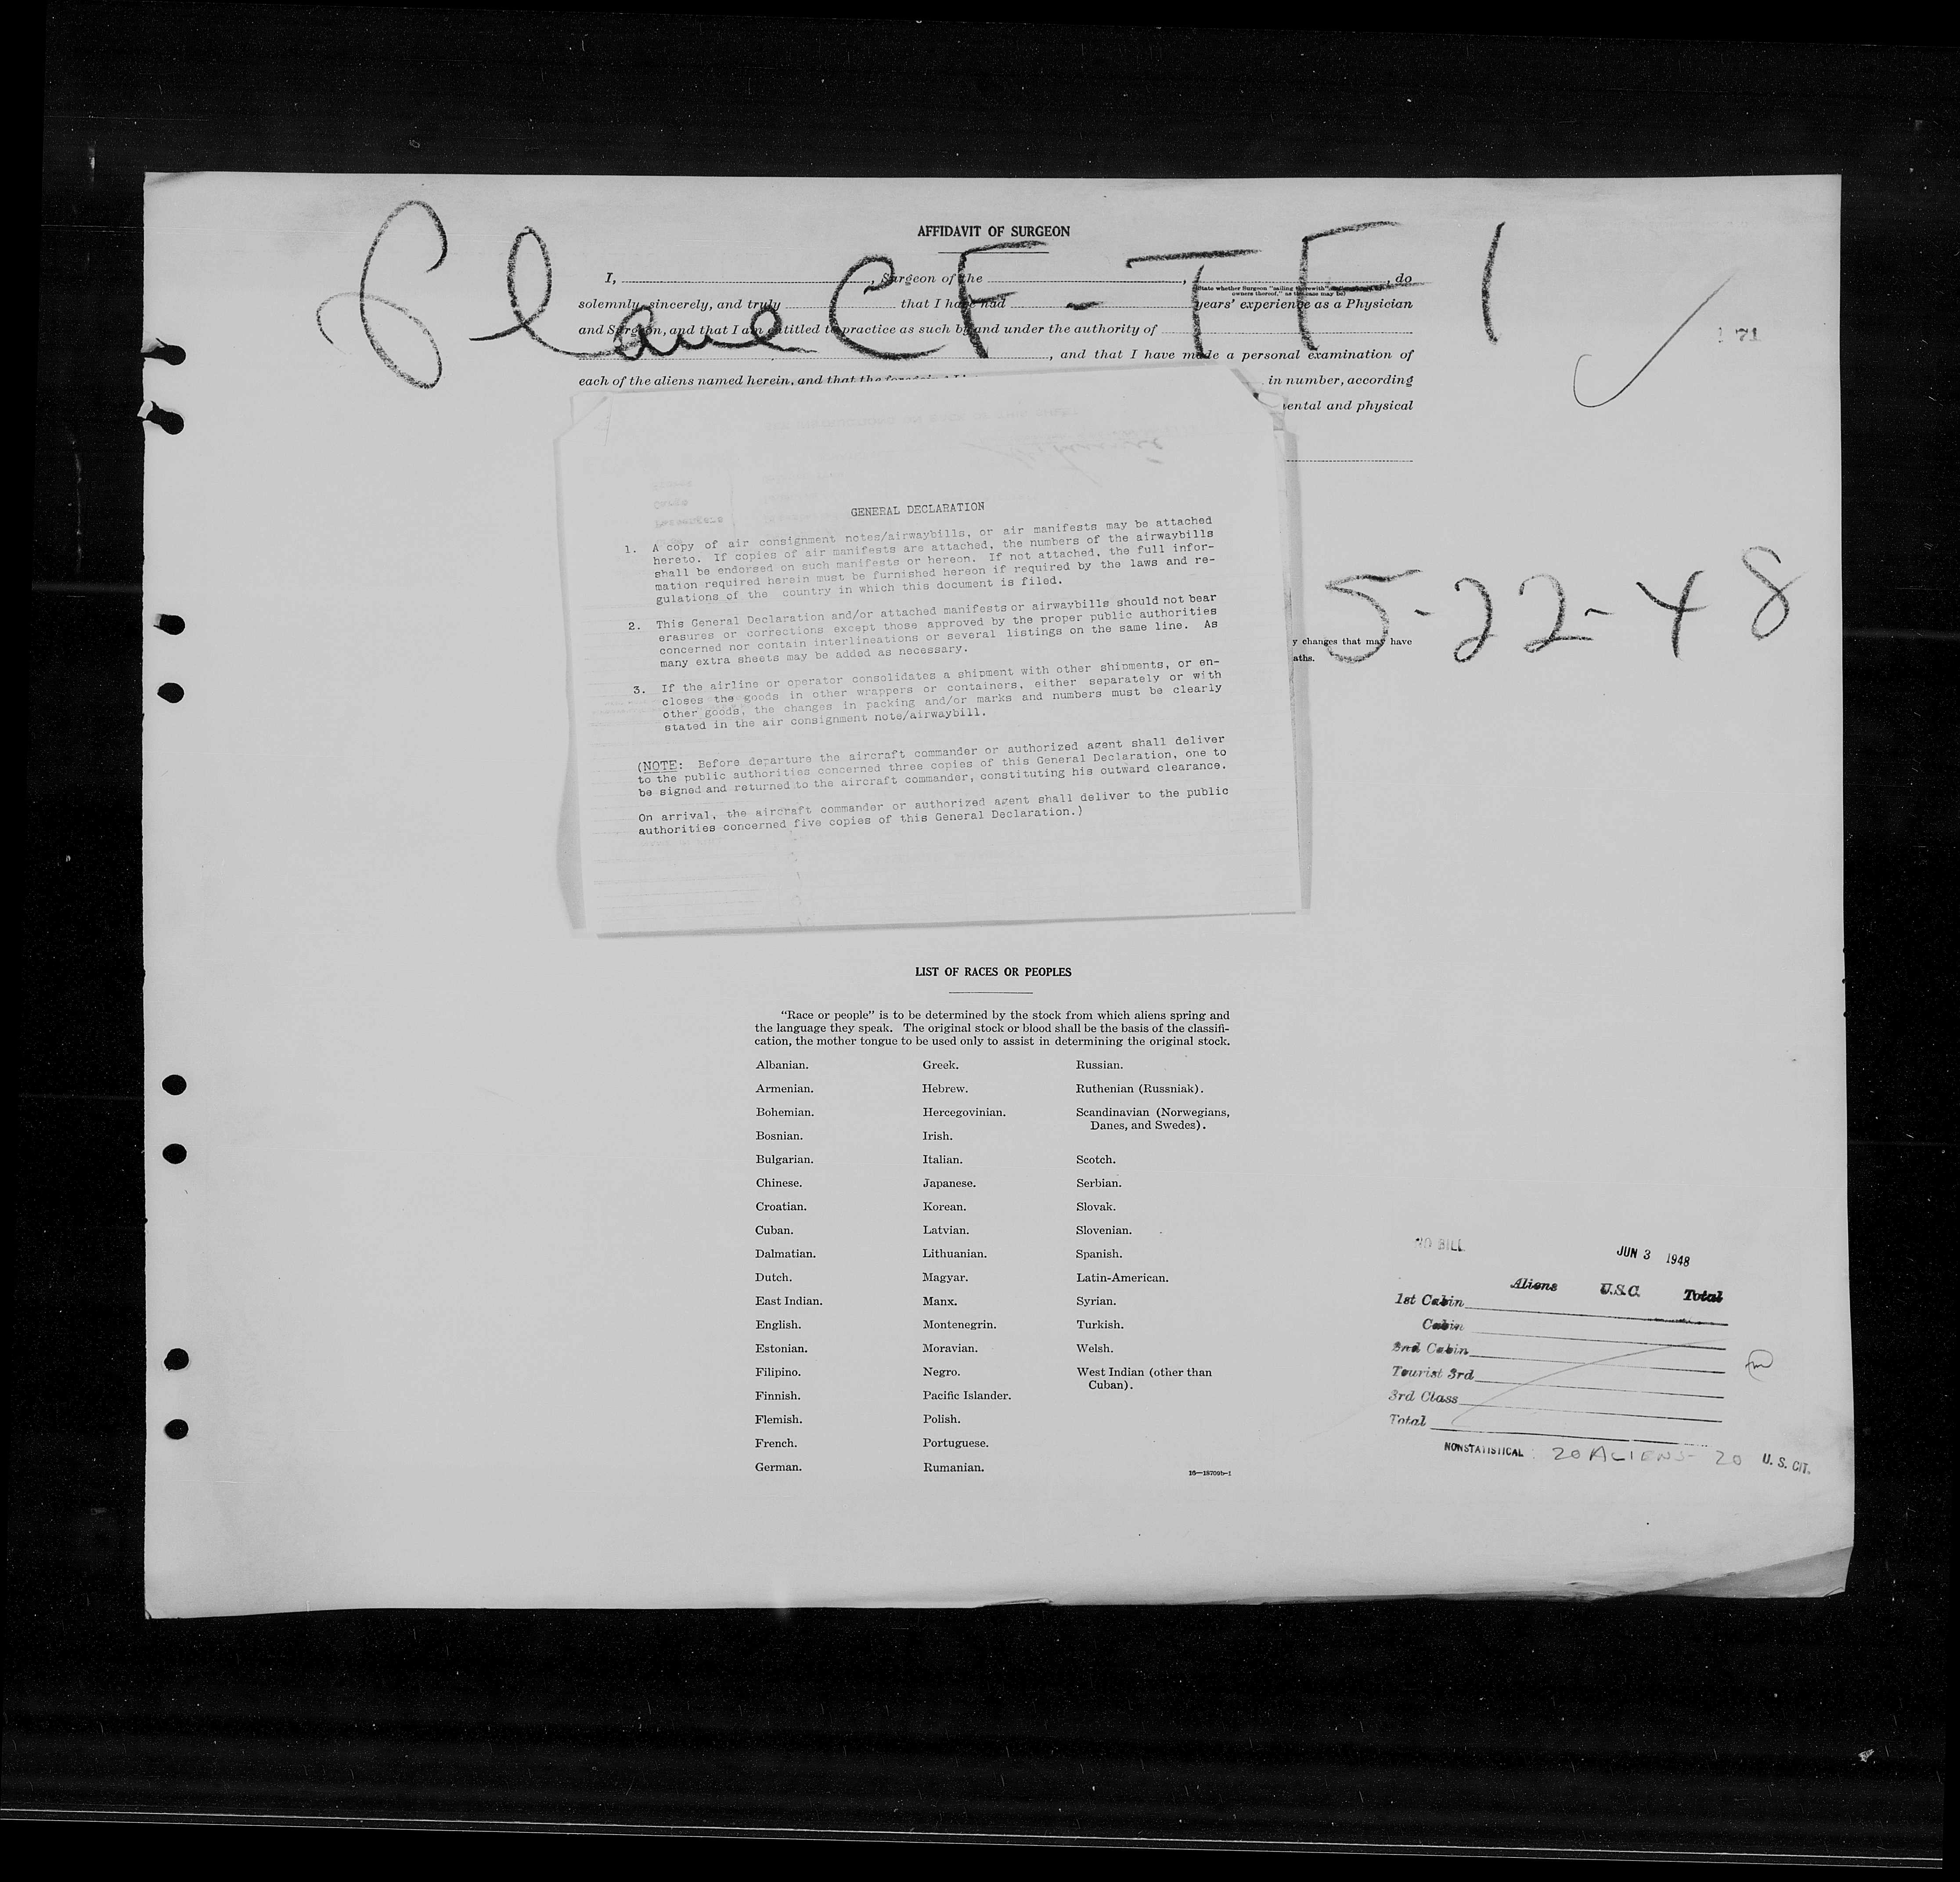 AFFIDAVIT OF SURGEON
Plane CF-TFI
I, , Surgeon of the , , do
State whether Surgeon "sailing therewith"
owners thereof," as the case may be)
solemnly, sincerely, and truly that I have had years' experience as a Physician
and Surgeon, and that I am entitled to practice as such by and under the authority of
, and that I have made a personal examination of
each of the aliens named herein, and that the foregoing in number, according
mental and physical
171
GENERAL DECLARATION
1. A copy of air consignment notes/airwaybills, or air manifests may be attached
hereto. If copies of air manifests are attached, the numbers of the airwaybills
shall be endorsed on such manifests or hereon. If not attached, the full infor-
mation required herein must be furnished hereon if required by the laws and re-
gulations of the country in which this document is filed.
2. This General Declaration and/or attached manifests or airwaybills should not bear
erasures or corrections except those approved by the proper public authorities
concerned nor contain interlineations or several listings on the same line. As
many extra sheets may be added as necessary.
3. If the airline or operator consolidates a shipment with other shipments, or en-
closes the goods in other wrappers or containers, either separately or with
other goods, the changes in packing and/or marks and numbers must be clearly
stated in the air consignment note/airwaybill.
(NOTE: Before departure the aircraft commander or authorized agent shall deliver
to the public authorities concerned three copies of this General Declaration, one to
be signed and returned to the aircraft commander, constituting his outward clearance.
On arrival, the aircraft commander or authorized agent shall deliver to the public
authorities concerned five copies of this General Declaration.)
5-22-48
y changes that may have
aths.
LIST OF RACES OR PEOPLES
"Race or people" is to be determined by the stock from which aliens spring and
the language they speak. The original stock or blood shall be the basis of the classifi-
cation, the mother tongue to be used only to assist in determining the original stock.
Albanian.
Armenian.
Bohemian.
Bosnian.
Bulgarian.
Chinese.
Croatian.
Cuban.
Dalmatian.
Dutch.
East Indian.
English.
Estonian.
Filipino.
Finnish.
Flemish.
French.
German.
Greek.
Hebrew.
Hercegovinian.
Irish.
Italian.
Japanese.
Korean.
Latvian.
Lithuanian.
Magyar.
Manx.
Montenegrin.
Moravian.
Negro.
Pacific Islander.
Polish.
Portuguese.
Rumanian.
Russian.
Ruthenian (Russniak).
Scandinavian (Norwegians,
Danes, and Swedes).
Scotch.
Serbian.
Slovak.
Slovenian.
Spanish.
Latin-American.
Syrian.
Turkish.
Welsh.
West Indian (other than
Cuban).
16—18709b-1
NO BILL
JUN 3 1948
Aliens U.S.C. Total
1st Cabin
Cabin
2nd Cabin
Tourist 3rd
3rd Class
Total
NONSTATISTICAL 20 ALIENS- 20 U. S. CIT.